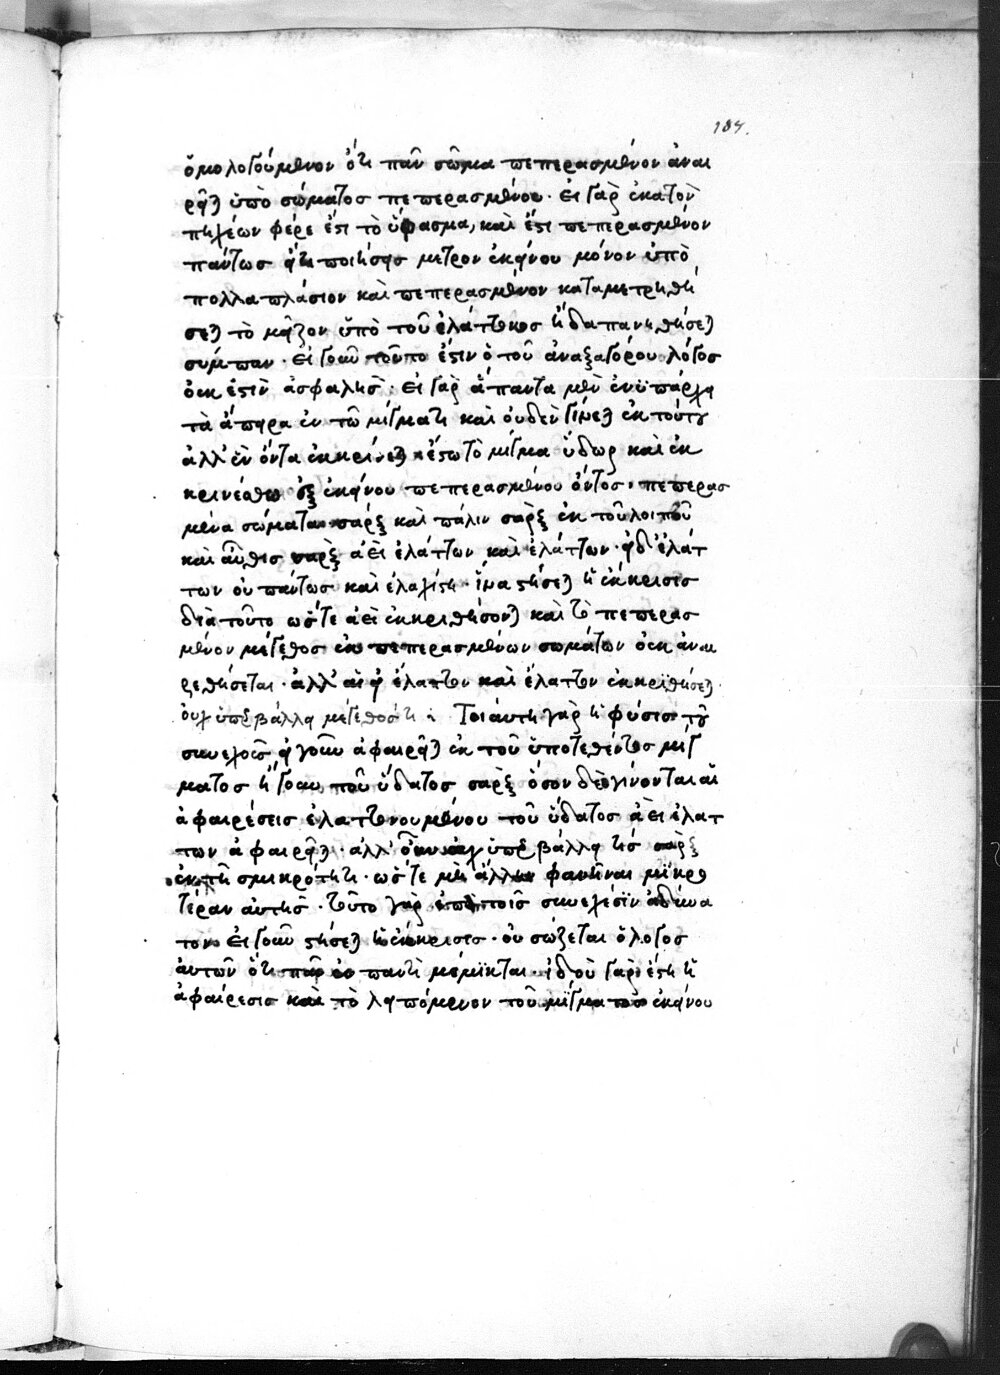 184.
ὁμολογούμενον ὅτι πᾶν σῶμα πεπερασμένον ἀναι
ρεῖται ὑπὸ σώματος πεπερασμένου· εἰ γὰρ ἑκατὸν
πήχεων φέρε ἐστι τὸ ὕφασμα, καὶ ἔστι πεπερασμένον
πάντως εἴ τι ποιήσεις μέτρον ἐκείνου μόνον ὑπὸ
πολλαπλάσιον καὶ πεπερασμένον καταμετρηθή
σεται τὸ μεῖζον ὑπὸ τοῦ ἐλάττονος ἢ δαπανηθήσεται
σύμπαν· εἰ γοῦν τοῦτο ἐστὶν ὁ τοῦ ἀναξαγόρου λόγος
οὐκ ἐστὶν ἀσφαλής· εἰ γὰρ ἅπαντα μὲν ἐνυπάρχει
τὰ ἄπειρα ἐν τῶ μίγματι καὶ οὐδὲν γίνεται ἐκ τούτου
ἀλλ' ἐνόντα ἐκκρίνεται ἔστω τὸ μίγμα ὕδωρ καὶ ἐκ
κρινέσθω ἐξ ἐκείνου πεπερασμένου ὄντος· πεπερασ
μένα σώματα σάρξ καὶ πάλιν σαρξ ἐκ τοῦ λοιποῦ
καὶ αὖθις σαρξ ἀεὶ ἐλάττων καὶ ἐλάττων· εἰ δ' ἐλάτ
των οὐ πάντως καὶ ἐλαχίστη· ἵνα στήσεται ἡ ἔκκρισις
διὰ τοῦτο ὥστε ἀεὶ ἐκκριθήσονται καὶ τὸ πεπερασ
μένον μέγεθος ἐκ πεπερασμένων σωμάτων οὐκ ἀναι
ρεθήσεται· ἀλλ' αἰεὶ ἐλάττων καὶ ἐλάττων ἐκκριθήσεται
οὐχ ὑπερβάλλει μέγεθός τι· Τοιαύτη γὰρ ἡ φύσις τοῦ
συνεχοῦς εἰ γοῦν ἀφαιρεῖται ἐκ τοῦ ὑποτεθέντος μίγ
ματος ἤγουν τοῦ ὕδατος σαρξ ὅσον δὲ γίνονται αἱ
ἀφαιρέσεις ἐλαττονουμένου τοῦ ὕδατος ἀεὶ ἐλάτ
των ἀφαιρεῖται· ἀλλ' ὑπερβάλλει τις σαρξ
ἐν τῆ σμικρότητι· ὥστε μὴ ἄλλην φανῆναι μικρο
τέραν αὐτῆς· τοῦτο γὰρ ἐπὶ τοῖς συνεχέσιν ἀδύνα
τον· εἰ γοῦν στήσεται ἡ ἔκκρισις· οὐ σώζεται ὁ λόγος
αὐτῶν ὅτι πᾶν ἐν παντὶ μέμικται· ἰδοὺ γὰρ ἔστη ἡ
ἀφαίρεσις καὶ τὸ λειπόμενον τοῦ μίγματος ἐκείνου